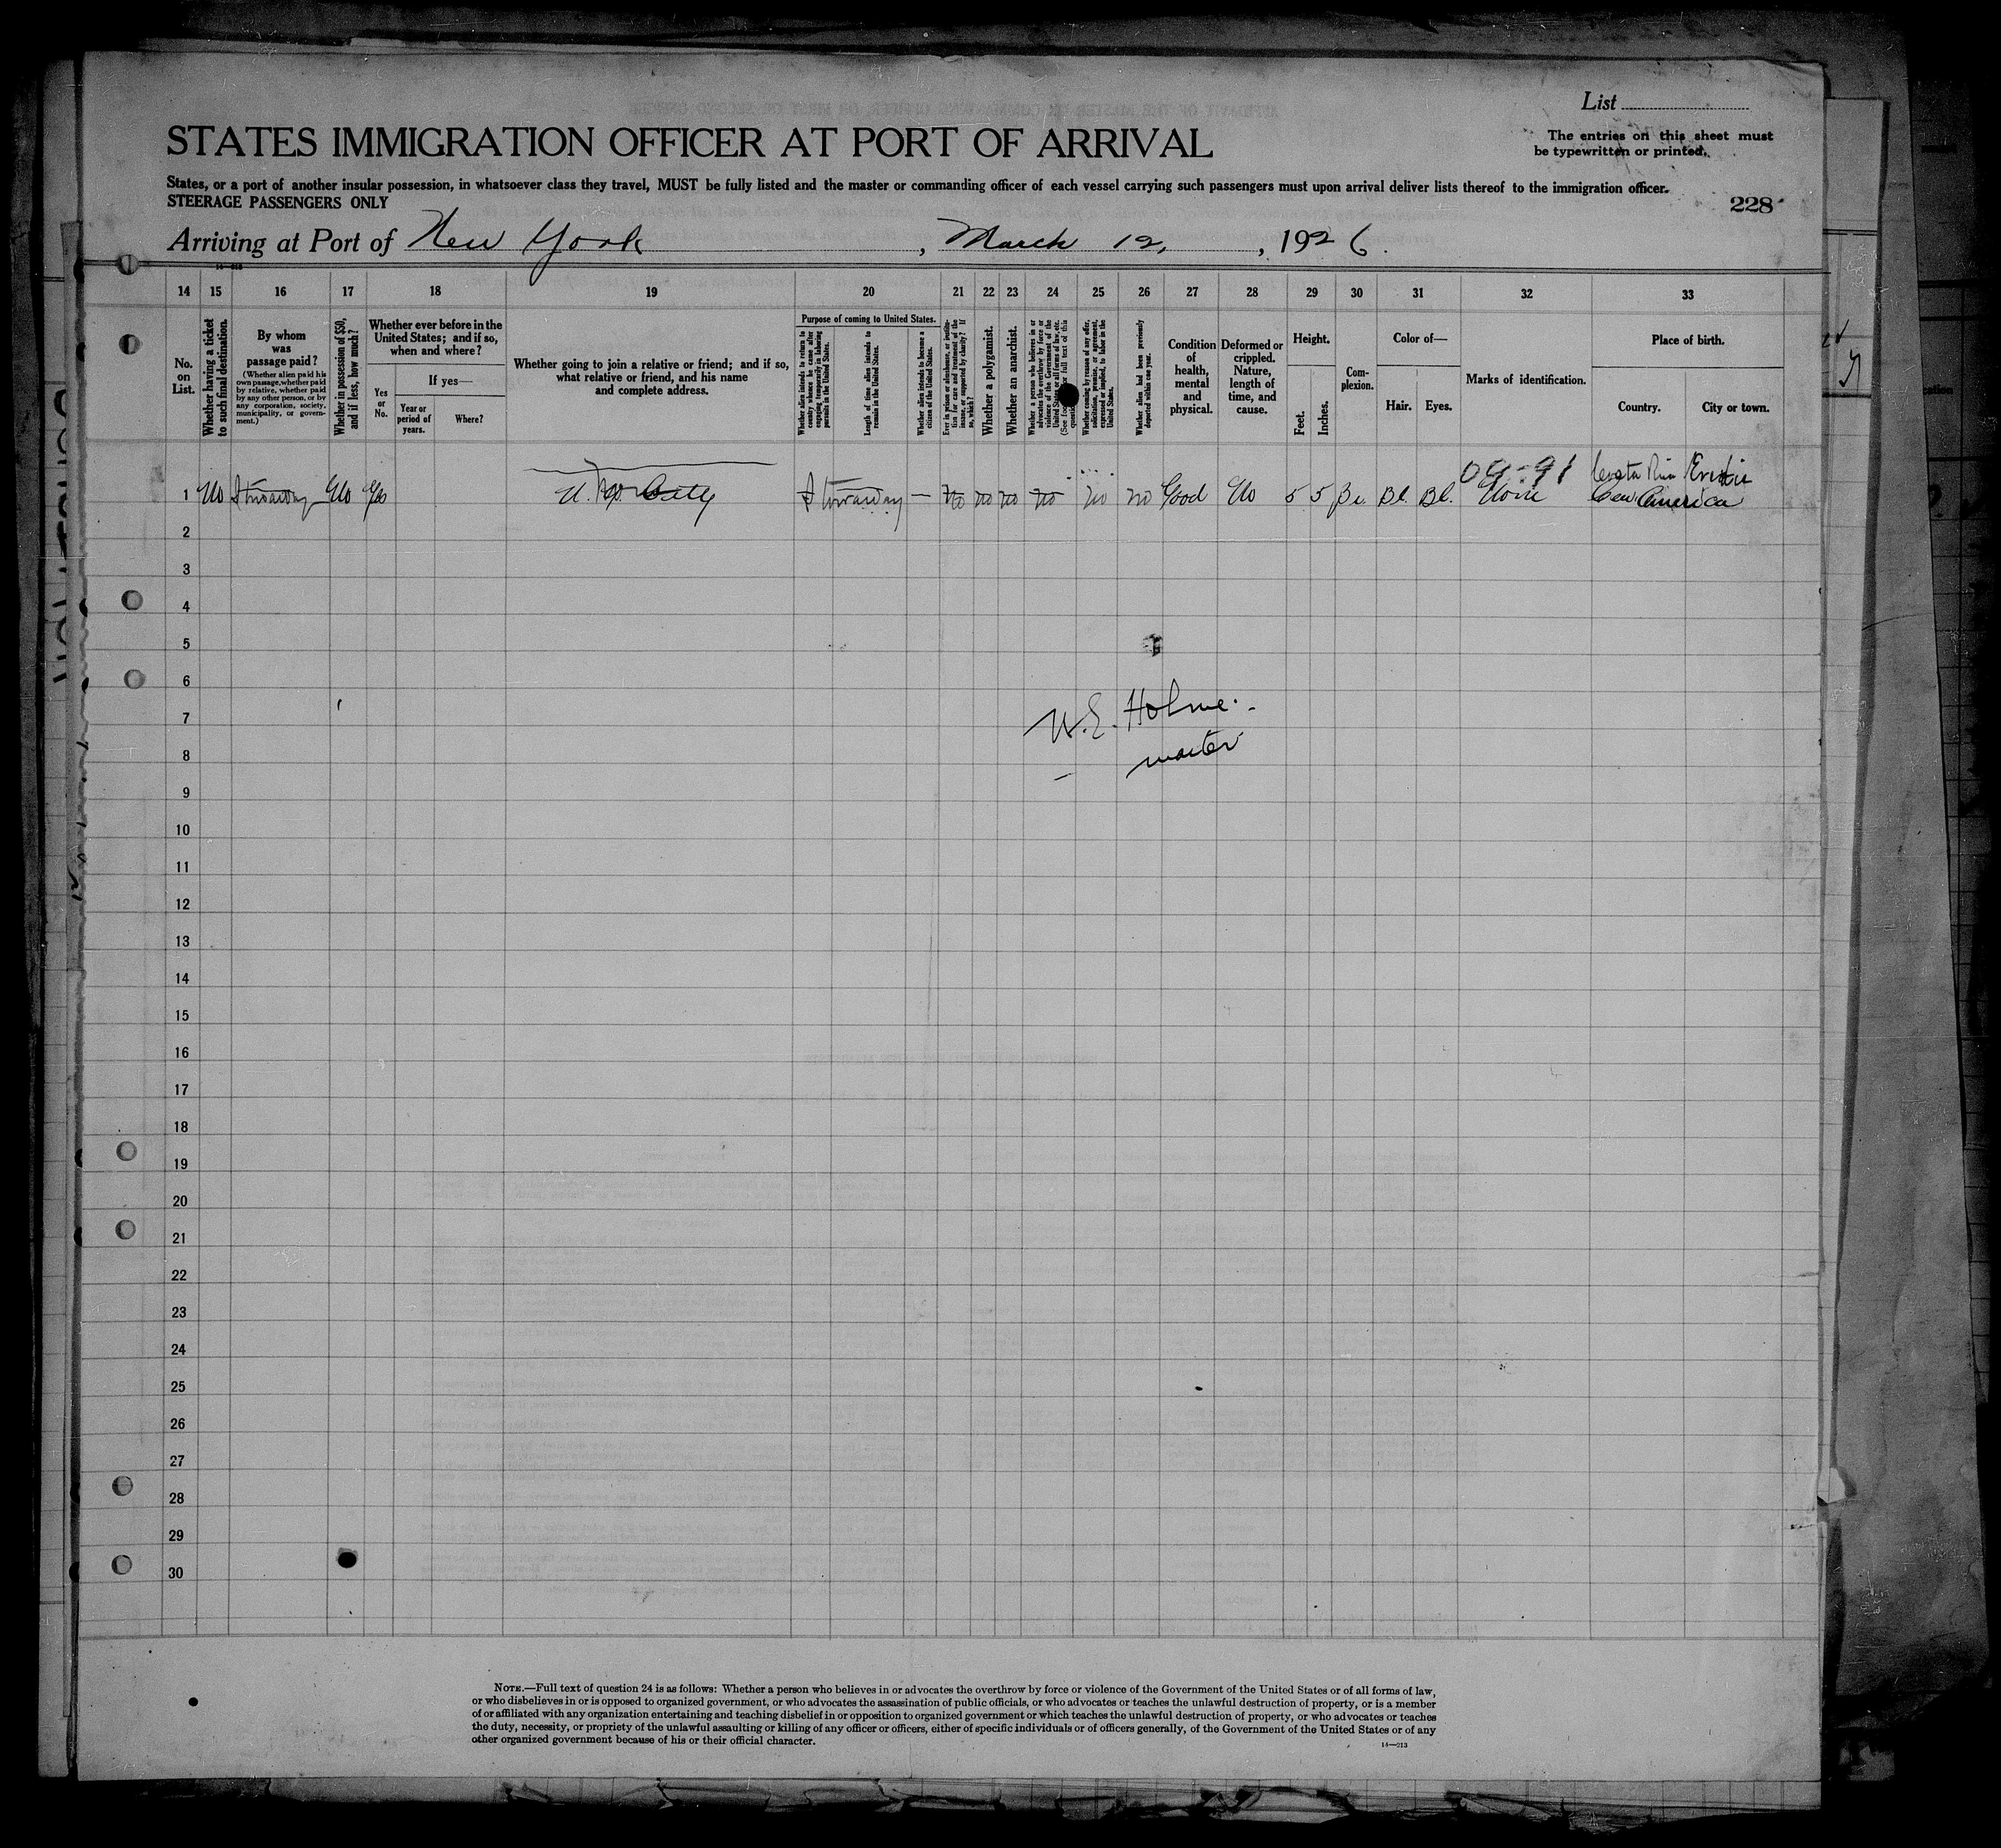 List
STATES IMMIGRATION OFFICER AT PORT OF ARRIVAL
The entries on this sheet must
be typewritten or printed.
States, or a port of another insular possession, in whatsoever class they travel, MUST be fully listed and the master or commanding officer of each vessel carrying such passengers must upon arrival deliver lists thereof to the immigration officer.
STEERAGE PASSENGERS ONLY
228
Arriving at Port of New York, March 12, 1926.
14 15 16 17 18 19 20 21 22 23 24 25 26 27 28 29 30 31 32 33
No. on List.
Whether having a ticket to such final destination.
By whom was passage paid?
(Whether alien paid his own passage, whether paid by relative, whether paid by any other person, or by any corporation, society, municipality, or government.)
Whether in possession of $50, and if less, how much?
Whether ever before in the United States; and if so, when and where?
Yes or No.
If yes—
Year or period of years.
Where?
Whether going to join a relative or friend; and if so, what relative or friend, and his name and complete address.
Purpose of coming to United States.
Whether alien intends to return to country whence he came after engaging temporarily in laboring pursuits in the United States.
Length of time alien intends to remain in the United States.
Whether alien intends to become a citizen of the United States.
Ever in prison or almshouse, or institution for care and treatment of the insane, or supported by charity? If so, which?
Whether a polygamist.
Whether an anarchist.
Whether a person who believes in or advocates the overthrow by force or violence of the Government of the United States or all forms of law, etc.
Whether coming by reason of any offer, solicitation, promise, or agreement, expressed or implied, to labor in the United States.
Whether alien had been previously deported within one year.
Condition of health, mental and physical.
Deformed or crippled. Nature, length of time, and cause.
Height.
Feet.
Inches.
Complexion.
Color of—
Hair.
Eyes.
Marks of identification.
Place of birth.
Country.
City or town.
1 No Stowaway No Yes Stowaway — no no no no no no Good No 5 5 Bl. Bl. None Cen. America
2
3
4
5
6
7
8
9
10
11
12
13
14
15
16
17
18
19
20
21
22
23
24
25
26
27
28
29
30
W.E. Holme.
master
NOTE.—Full text of question 24 is as follows: Whether a person who believes in or advocates the overthrow by force or violence of the Government of the United States or of all forms of law,
or who disbelieves in or is opposed to organized government, or who advocates the assassination of public officials, or who advocates or teaches the unlawful destruction of property, or is a member
of or affiliated with any organization entertaining and teaching disbelief in or opposition to organized government or which teaches the unlawful destruction of property, or who advocates or teaches
the duty, necessity, or propriety of the unlawful assaulting or killing of any officer or officers, either of specific individuals or of officers generally, of the Government of the United States or of any
other organized government because of his or their official character.
14—213